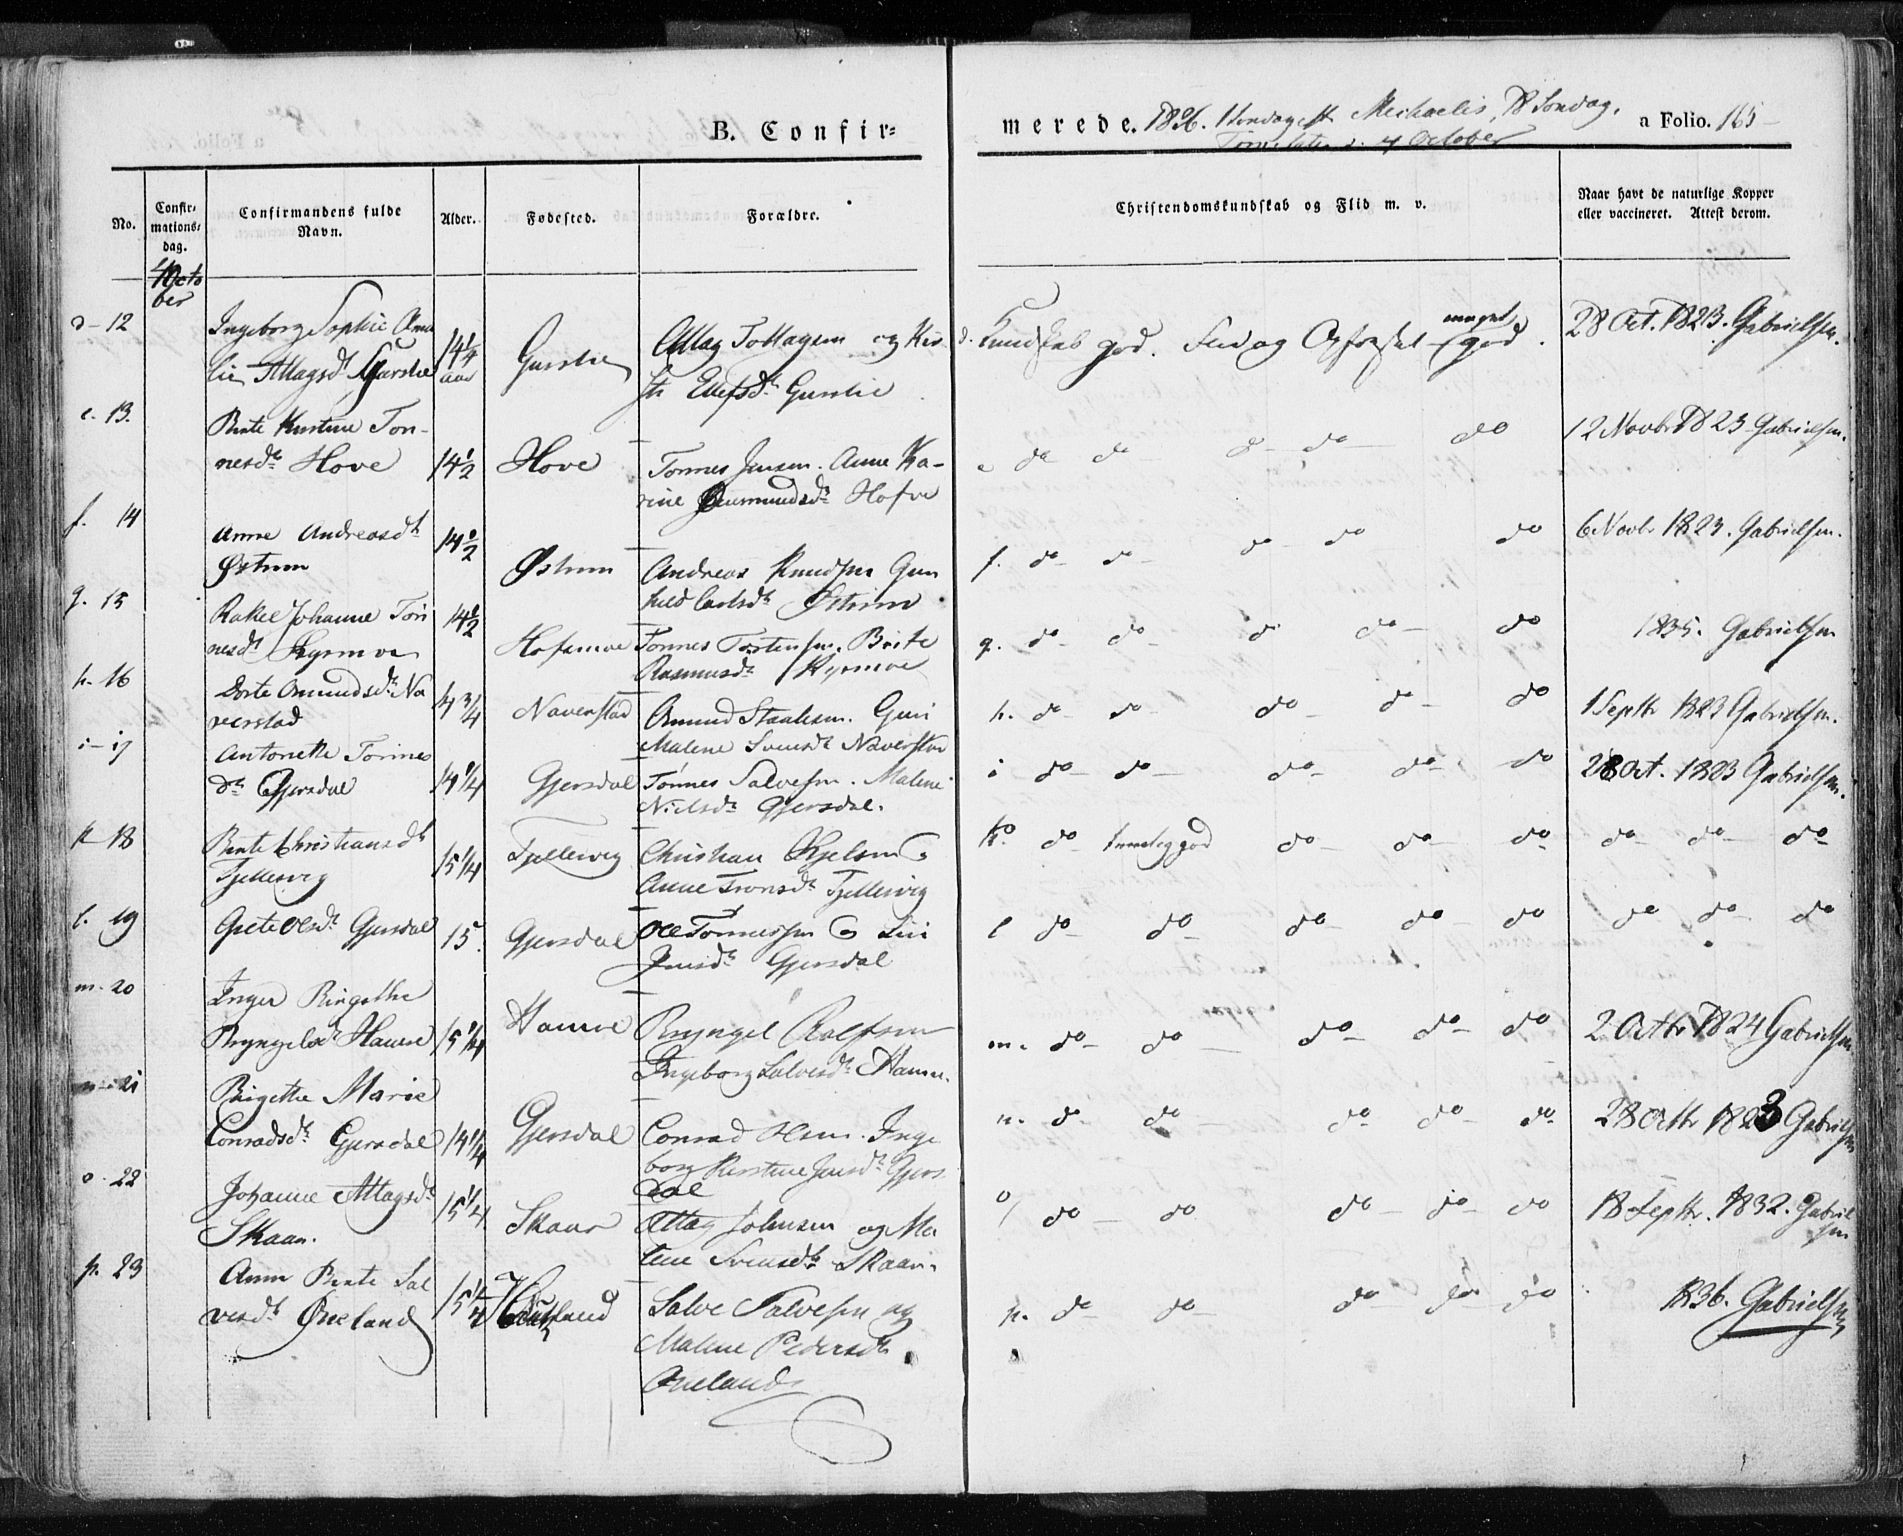 B. Confir=
merede. 1836. 1 Søndag eft Michaelis, 18 Søndag,
Trinitatis d. 4 October
a Folio. 165
No.
Confir=
mations=
dag.
Confirmandens fulde
Navn.
Alder.
Fødested.
Forældre.
Christendomskundskab og Flid m. v.
Naar havt de naturlige Kopper
eller vaccineret. Attest derom.
4 Octo
ber
d - 12
Ingeborg Sophie Ama
lie Attagsdt
14 1/4
aar
Attag Tollagsen og Kir
sti Ellefsdt
d. Kundskab god. Flid og Opførsel meget god.
28 Oct. 1823. Gabrielsen.
e. 13.
Berte Kirstine Ton-
nesdt Hove
14 1/2
Hove
Tonnes Jensen. Anne Ka-
rine Gunmundsdt Hofve
e do do do do do
12 Novbr 1823 Gabrielsen.
f. 14
Anne Andreasdt
Østrem
14 1/2
Østrem
Andreas Knudsen Gun
hild Carlsdt Østrem
f. do do do do do
6 Novbr 1823. Gabrielsen.
g. 15
Rakel Johanne Ton
nesdt Kysmoe
14 1/2
Hofsmoe
Tonnes Tostensen. Berte
Rasmusdt Kysmoe
g. do do do do do
1835. Gabrielsen
h. 16
Dorte Amundsdt Na
verstad
14 3/4
Naverstad
Amund Staalesen. Guri
Malene Svensdt Naverstad
h. do do do do do
1 Septbr 1823 Gabrielsen.
i - 17
Antonette Tonnes
dt Gjersdal
14 1/4
Gjersdal
Tonnes Salvesen. Malene
Nielsdt Gjersdal.
i do do do do do
28 Oct. 1823 Gabrielsen.
k 18
Berte Christiansdt
Fjellesvig
15 1/4
Fjellesvig
Christian Kjelsen &
Anne Tronsdt Fjellesvig
k. do temelig god do do do
do do do
l. 19
Grete Olsdt Gjersdal
15.
Gjersdal
Ole Tonnessen & Siri
Jensdt Gjersdal
l do do do do do
do do do
m. 20
Inger Birgithe
Bryngelsdt Hamre
15 1/4
Hamre
Bryngel Rolfsen
Ingeborg Salvesdt Hamre.
m. do do do do do
2 Octbr 1824 Gabrielsen
n - 21
Birgithe Marie
Conradsdt Gjersdal
14 1/4
Gjersdal
Conrad Olsen. Inge
borg Kirstine Jensdt Gjers
dal
n. do do do do do
28 Octbr 1823 Gabrielsen
o. 22
Johanne Attagsdt
Skaar.
15 1/4
Skaar
Attag Johnsen og Ma
lene Svensdt Skaar.
o/ do do do do do
18 Septbr. 1832. Gabriel
sen
p. 23
Anne Berte Sal
vesdt Øieland
15 1/4
Salve Salvesen og
Malene Pedersdt
Øieland
p. do do do do do
1836. Gabrielsen